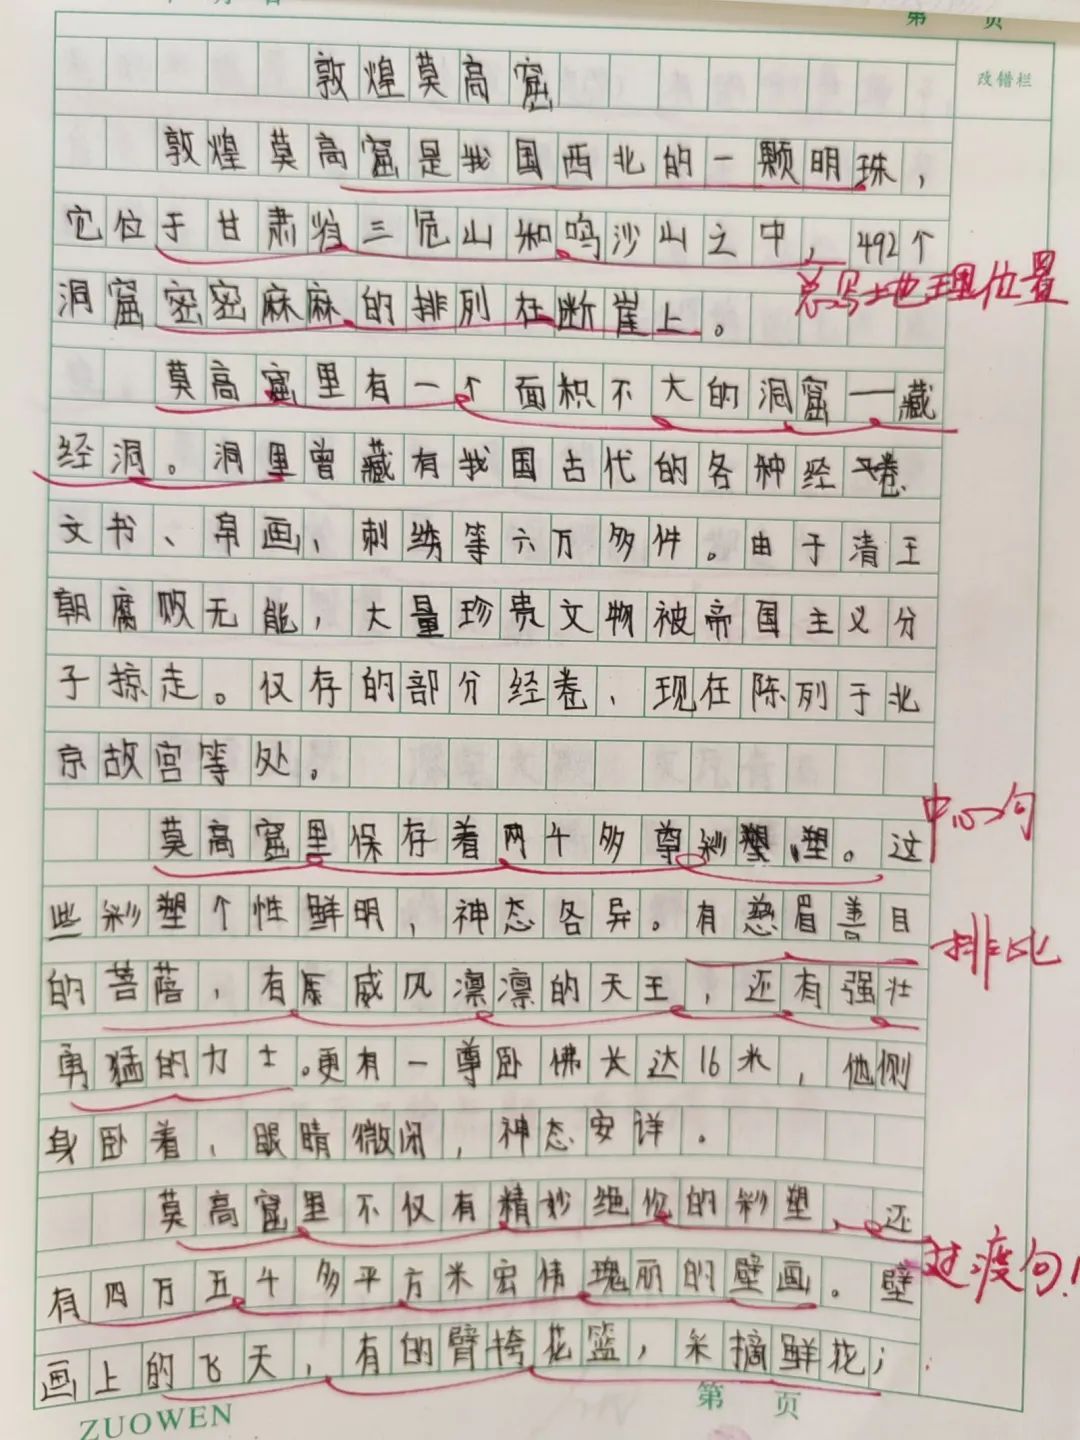 第 页
改错栏
敦煌莫高窟
敦煌莫高窟是我国西北的一颗明珠，
它位于甘肃省三危山和鸣沙山之中，492个
总写地理位置
洞窟密密麻麻的排列在断崖上。
莫高窟里有一个面积不大的洞窟一藏
经洞。洞里曾藏有我国古代的各种经卷、
文书、帛画，刺绣等六万多件。由于清王
朝腐败无能，大量珍贵文物被帝国主义分
子掠走。仅存的部分经卷，现在陈列于北
京故宫等处。
中心句
莫高窟里保存着两千多尊彩塑。这
些彩塑个性鲜明，神态各异。有慈眉善目
排比
的菩萨，有威风凛凛的天王，还有强壮
勇猛的力士。更有一尊卧佛长达16米，他侧
身卧着，眼睛微闭，神态安详。
莫高窟里不仅有精妙绝伦的彩塑，还
过渡句！
有四万五千多平方米宏伟瑰丽的壁画。壁
画上的飞天，有的臂挎花篮，采摘鲜花；
ZUOWEN
第 页